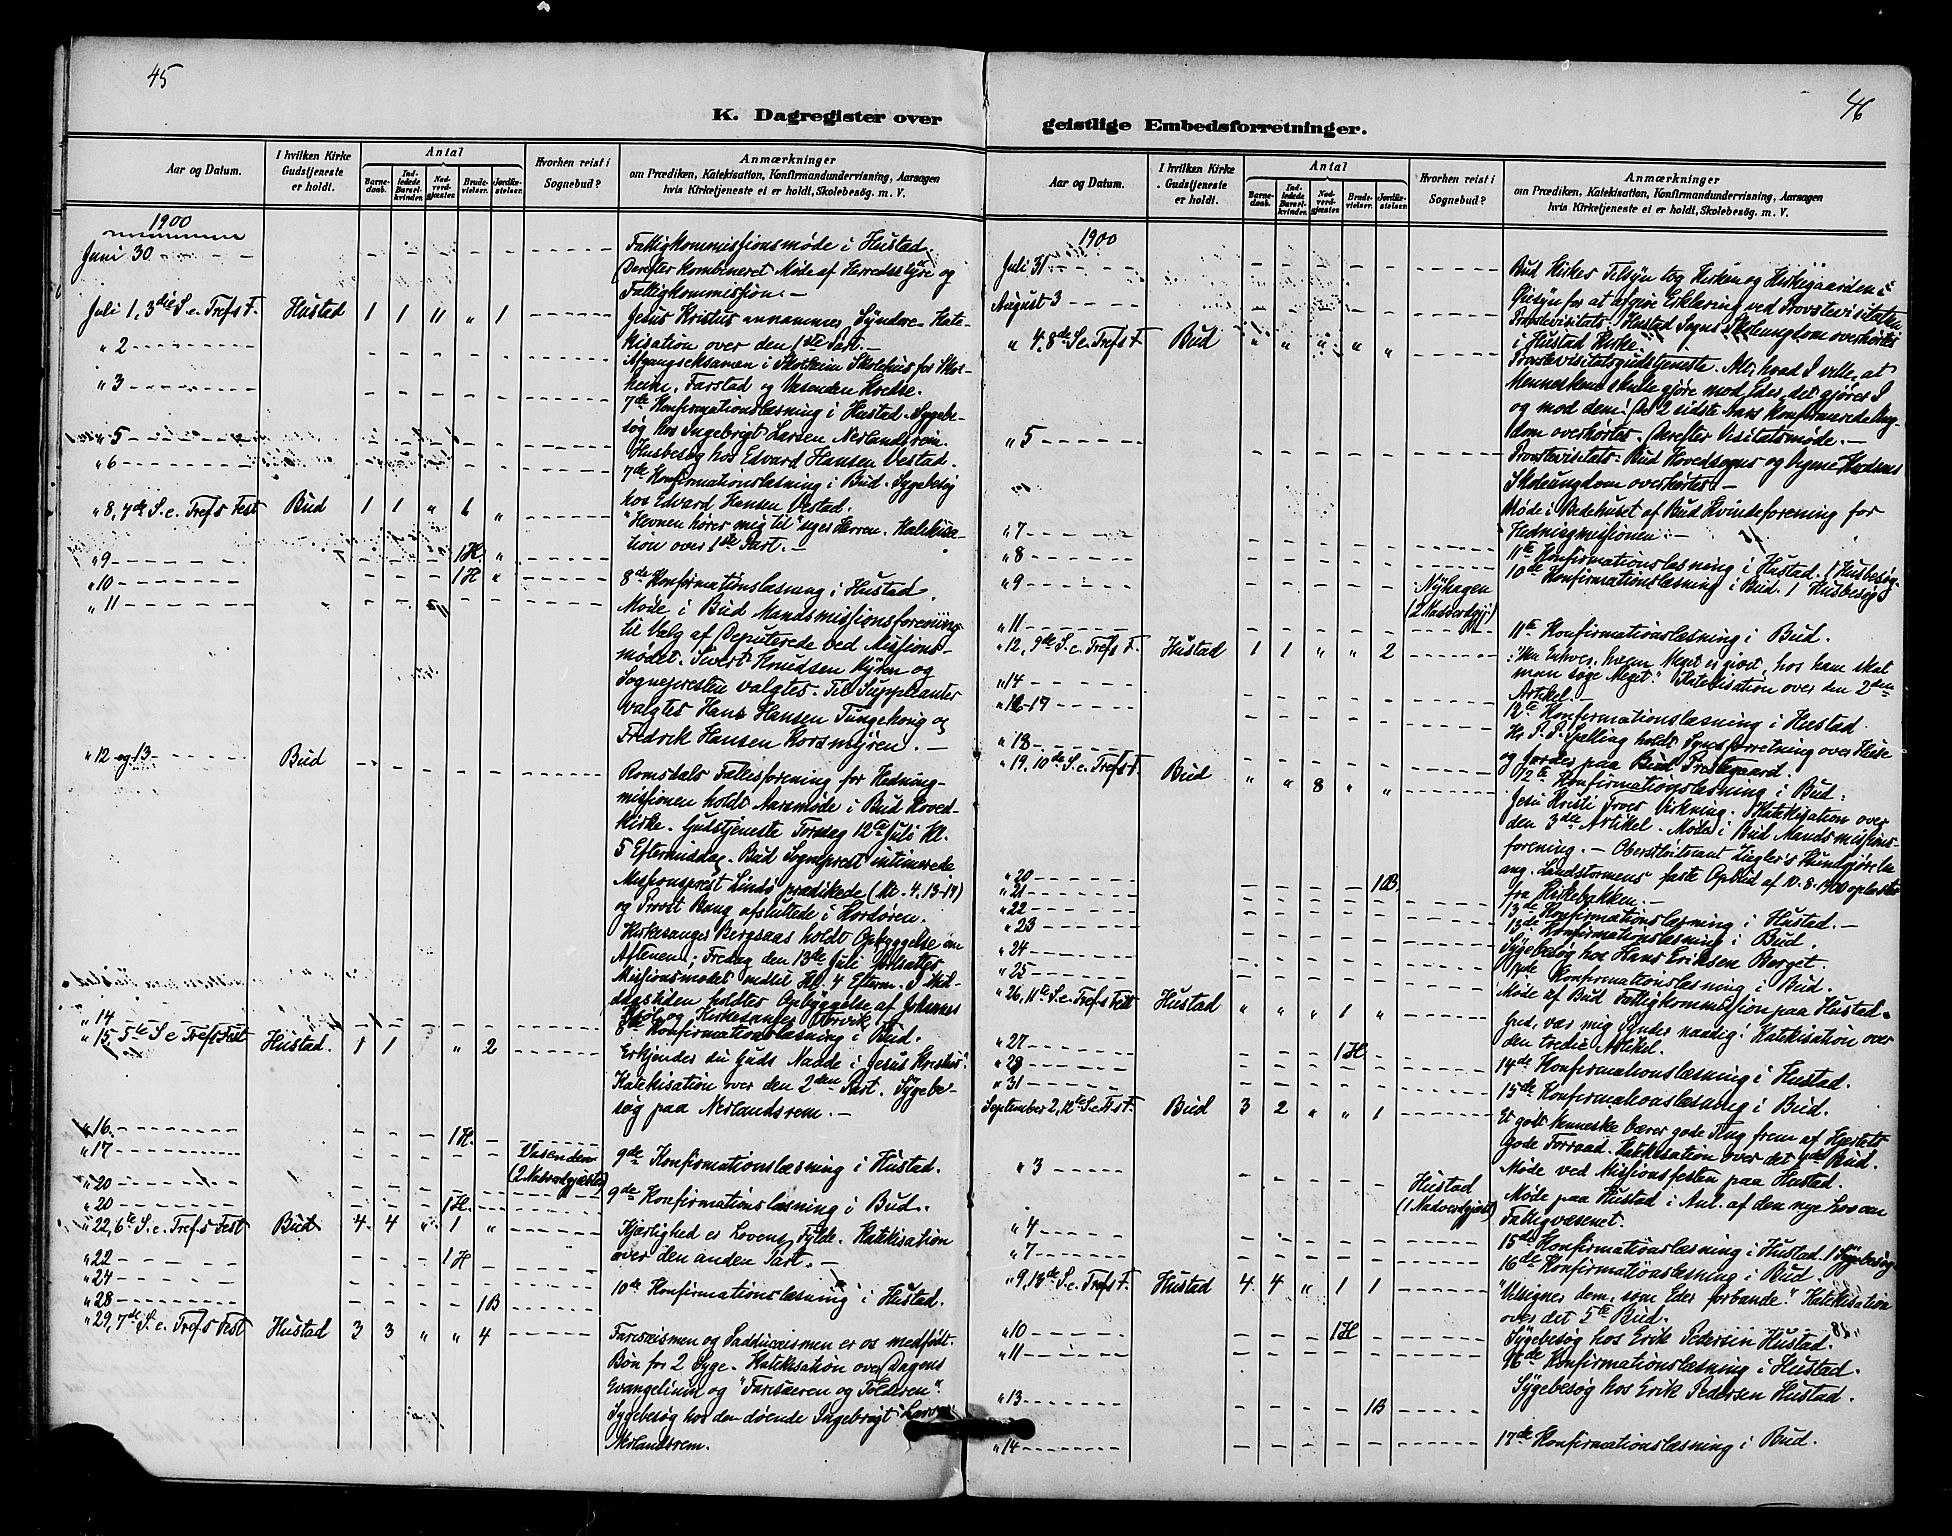 45
K. Dagregister over
Aar og Datum.
I hvilken Kirke Gudstjeneste er holdt.
Antal
Barnedaab.
Indledede Barselkvinder.
Nadverdgjæster.
Brudevielser.
Jordfæstelser.
Hvorhen reist i Sognebud?
Anmærkninger
om Prædiken, Katekisation, Konfirmandundervisning, Aarsagen
hvis Kirketjeneste ei er holdt, Skolebesøg. m. V.
1900
Juni 30 Fattigkommissionsmøde i Hustad.
Derefter kombineret Møde af Herredsstyre og
Fattigkommission.-
Juli 1, 3die S. e. Trefs F. Hustad 1 1 11 " 1 Jesus Kristus annammer Syndere. Kate-
kisation over den 1ste Part.-
" 2 Afgangseksamen i Skotheim Skolehus for Skot-
heim, Farstad og Vasenden Kredse.
" 3 7de Konfirmationslæsning i Hustad. Sygebe-
søg hos Ingebrigt Larsen Nerlandsrem.
" 5 Husbesøg hos Edvard Hansen Vestad.
" 6 7de Konfirmationslæsning i Bud. Sygebesøg
hos Edvard Hansen Vestad.
" 8, 7de S. e. Trefs Fest Bud 1 1 " "
"Hevnen hører mig til" siger Herren. Katekisa-
tion over 1ste Part.-
" 9 1 H. "
" 10 1 H " 8de Konfirmationslæsning i Hustad.
" 11 Møde i Bud Mandsmissionsforening
til Valg af Deputerede ved Missions-
mødet. Sivert Knudsen Myren og
Sognepresten valgtes. Til Suppleanter
valgtes Hans Hansen Tungehaug og
Fredrik Hansen Korsmyren.-
" 12 og 13 Bud Romsdals Fællesforening for Hedning-
missionen holdt Aarsmøde i Bud Hoved-
kirke. Gudstjeneste Torsdag 12te Juli Kl.
5 Eftermiddag. Bud Sogneprest intimerede
Missionsprest Lindø prædikede (Mt. 4. 13-17)
og Provst Bang afsluttede i Kordøren.
Kirkesanger Bergsaas holdt Opbyggelse om
Aftenen; Fredag den 13de Juli fortsattes
Missionsmødet indtil Kl. 4 Efterm. I Mid-
dagstiden holdtes Opbyggelse af Johannes
og Kirkesanger
" 14 8de Konfirmationslæsning i Bud.
" 15, 5te S. e. Trefs Fest Hustad. 1 1 " 2 Erkjender du Guds Naade i Jesus Kristus?
Katekisation over den 2den Part. Sygebe-
søg paa Nerlandsrem.-
" 16. 1 H.
" 17 Vasenden 9de Konfirmationslæsning i Hustad.
(2 Nadverdgjæster)
" 20 9de Konfirmationslæsning i Bud.
" 20 1 H.
" 22, 6te S. e. Trefs Fest Bud 4 4 " 1 " Kjærlighed er Lovens Fylde. Katekisation
over den anden Part.-
" 22 1 H
" 24 10de Konfirmationslæsning i Hustad.
" 28 1 B
" 29, 7de S. e. Trefs Fest Hustad 3 3 " " 4 Farisæismen og Sadducæismen er os medfødt.
Bøn for 2 Syge. Katekisation over Dagens
Evangelium og "Farisæeren og Tolderen".
Sygebesøg hos den døende Ingebrigt Larsen
Nerlandsrem.
46
geistlige Embedsforretninger.
Aar og Datum.
I hvilken Kirke Gudstjeneste er holdt.
Antal
Barnedaab.
Indledede Barselkvinder.
Nadverdgjæster.
Brudevielser.
Jordfæstelser.
Hvorhen reist i Sognebud?
Anmærkninger
om Prædiken, Katekisation, Konfirmandundervisning, Aarsagen
hvis Kirketjeneste ei er holdt, Skolebesøg. m. V.
1900
Juli 31 Bud Kirkes Tilsyn tog Kirken og Kirkegaarden i
Øiesyn for at afgive Erklæring ved Provstevisitatsen
August 3 Provstevisitats. Hustad Sogns Skoleungdom overhørtes
i Hustad Kirke.
" 4, 8de S. e. Trefs F. Bud " " " " " Provstevisitatsgudstjeneste. Alt, hvad I ville, at
Menneskene skulle gjøre mod Eder, det gjører I
og mod dem! De 2 sidste Aars Konfirmerede Ung-
dom overhørtes. Derefter Visitatsmøde.-
" 5 Provstevisitats: Bud Hovedsogns og Kredsens
Skoleungdom overhørtes.-
Møde i Bedehuset af Bud Kvindeforening for
Hedningmissionen.-
" 7 11te Konfirmationslæsning i Hustad. 1 Husbesøg.
" 8 10de Konfirmationslæsning i Bud. 1 Husbesøg
" 9 Nyhagen
(2 Nadverdgj.)
" 11 11te Konfirmationslæsning i Bud.
" 12, 9de S. e. Trefs F. Hustad 1 1 " " 2 "Men Enhver, hvem Meget er givet, hos ham skal
man søge Meget." Katekisation over den 2den
Artikel.-
" 14 12te Konfirmationslæsning i Hustad.
" 16-17 holdt Synsforretning over Huse
og Jorder paa Bud Prestegaard.
" 18 12te Konfirmationslæsning i Bud.
" 19, 10de S. e. Trefs F. Bud " " 8 " " Jesu Kristi Virkning. Katekisation over
den 3die Artikel. Møde i Bud Mandsmissions-
forening.- Oberstløitnant Ziegler's Kundgjørelse
ang. Landstormens første Opbud af 10-8-1900 oplæstes
fra Kirkebakken.-
" 20 1 B.
" 21 13de Konfirmationslæsning i Hustad.-
" 22 13de Konfirmationslæsning i Bud.
" 23 Sygebesøg hos Hans Eriksen Berget.
" 24 Konfirmationslæsning i Bud.
" 25 Møde af Bud Fattigkommission paa Hustad.
" 26, 11te S. e. Trefs Fest Hustad " " " 1 " Gud, vær mig Synder naadig! Katekisation over
den tredie Artikel.
" 27 1 H
" 28 14de Konfirmationslæsning i Hustad.
" 31 15de Konfirmationslæsning i Bud.
September 2, 12te S. e. Trefs F. Bud 3 2 " " 1 Et godt Menneske bærer gode Ting frem af Hjertets
Gode Forraad. Katekisation over det Bud.
Møde ved Missionsfesten paa Hustad.
" 3 Hustad Møde paa Hustad i Anl. af den nye Lov om
(1 Nadverdgjæst) Fattigvæsenet.
" 4 15de Konfirmationslæsning i Hustad. 1 Sygebesøg.
" 7 16de Konfirmationslæsning i Bud.
" 9, 13de S. e. Trefs F. Hustad 4 4 " 1 1 "Velsigner dem, som Eder forbande." Katekisation
over det 5te Bud.
" 10 1 H Sygebesøg hos Erik Pedersen Hustad.
" 11 16de Konfirmationslæsning i Hustad.
Sygebesøg hos Erik Pedersen Hustad.
" 13 1 B
" 14 17de Konfirmationslæsning i Bud.